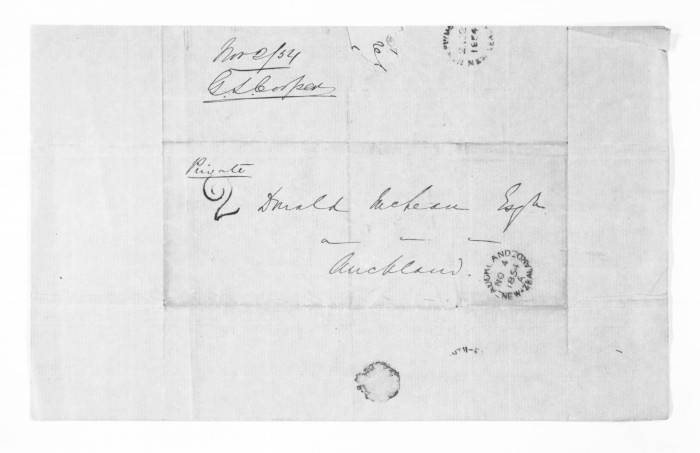 Nov 2/54
G. S. Cooper
1854
NEW ZEAL
Private
2 Donald McLean Esqr
Auckland.
AUCKLAND NO 4 1854 A NEW-ZEALAND